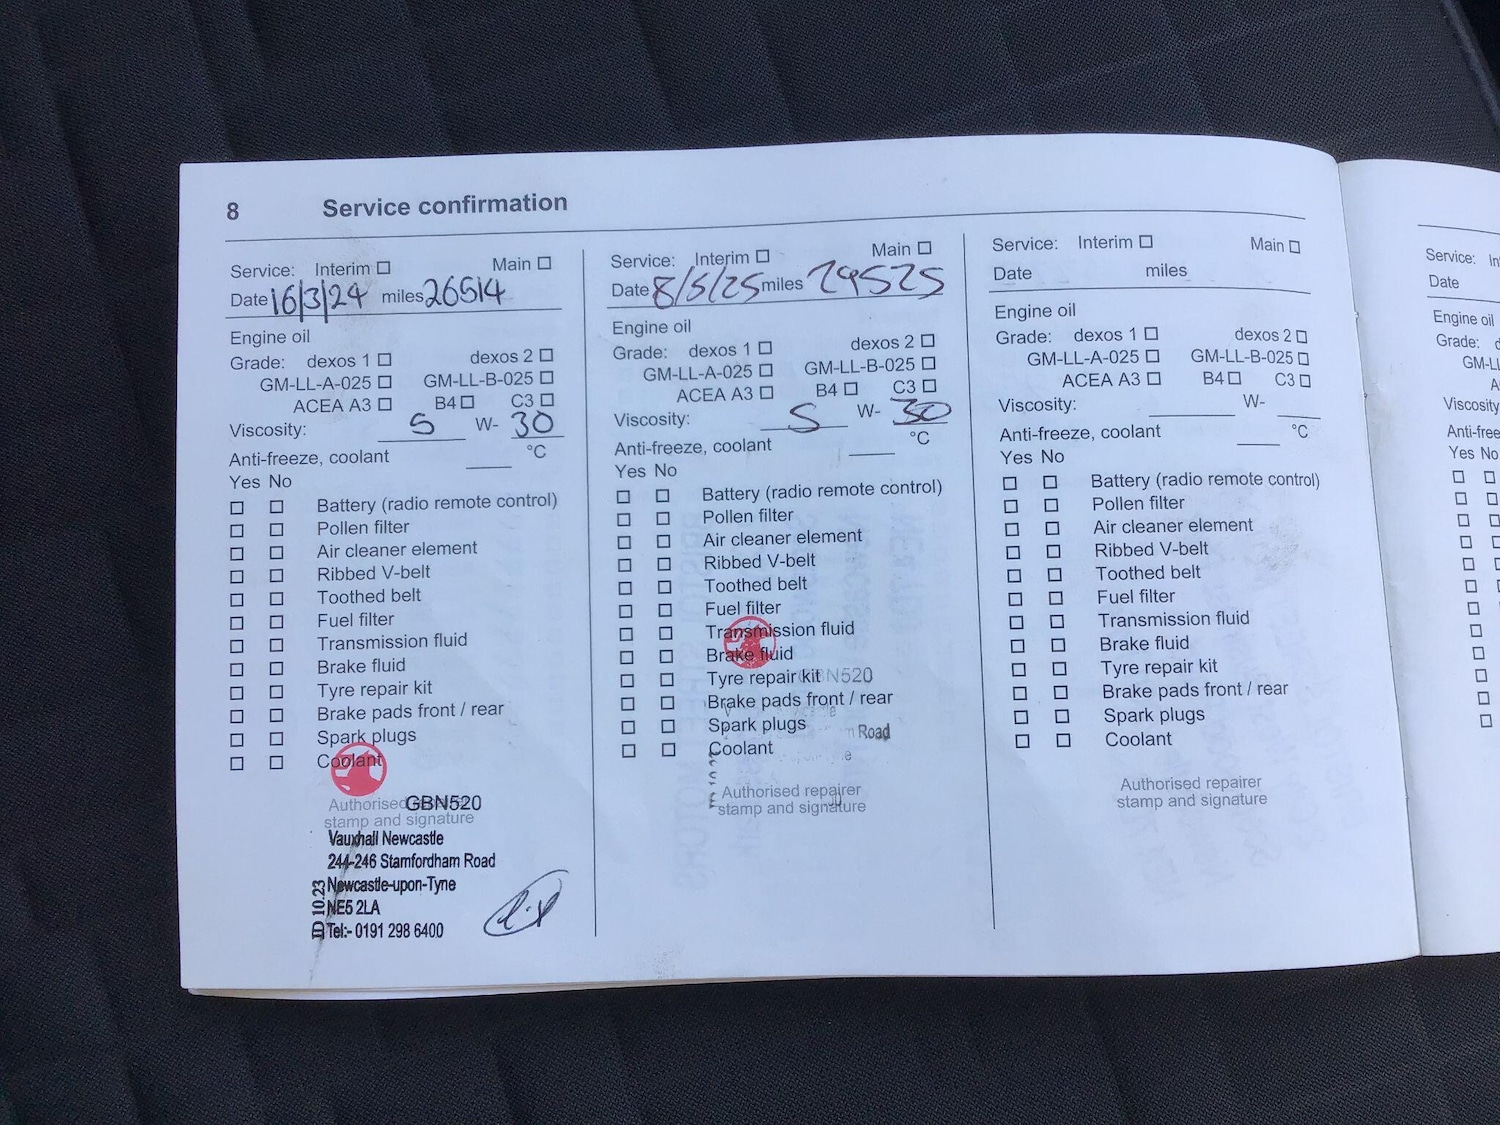 8 Service confirmation
Service: Interim ☐ Main ☐
Date 16/3/24 miles 26514
Engine oil
Grade: dexos 1 ☐ dexos 2 ☐
GM-LL-A-025 ☐ GM-LL-B-025 ☐
ACEA A3 ☐ B4 ☐ C3 ☐
Viscosity: 5 W- 30
Anti-freeze, coolant ____ °C
Yes No
☐ ☐ Battery (radio remote control)
☐ ☐ Pollen filter
☐ ☐ Air cleaner element
☐ ☐ Ribbed V-belt
☐ ☐ Toothed belt
☐ ☐ Fuel filter
☐ ☐ Transmission fluid
☐ ☐ Brake fluid
☐ ☐ Tyre repair kit
☐ ☐ Brake pads front / rear
☐ ☐ Spark plugs
☐ ☐ Coolant
Authorised repairer
stamp and signature
GBN520
Vauxhall Newcastle
244-246 Stamfordham Road
Newcastle-upon-Tyne
NE5 2LA
Tel:- 0191 298 6400
ID 10.23
Service: Interim ☐ Main ☐
Date 8/5/25 miles 29525
Engine oil
Grade: dexos 1 ☐ dexos 2 ☐
GM-LL-A-025 ☐ GM-LL-B-025 ☐
ACEA A3 ☐ B4 ☐ C3 ☐
Viscosity: 5 W- 30
Anti-freeze, coolant ____ °C
Yes No
☐ ☐ Battery (radio remote control)
☐ ☐ Pollen filter
☐ ☐ Air cleaner element
☐ ☐ Ribbed V-belt
☐ ☐ Toothed belt
☐ ☐ Fuel filter
☐ ☐ Transmission fluid
☐ ☐ Brake fluid
☐ ☐ Tyre repair kit GBN520
☐ ☐ Brake pads front / rear
☐ ☐ Spark plugs
Road
☐ ☐ Coolant
Authorised repairer
stamp and signature
Service: Interim ☐ Main ☐
Date miles
Engine oil
Grade: dexos 1 ☐ dexos 2 ☐
GM-LL-A-025 ☐ GM-LL-B-025 ☐
ACEA A3 ☐ B4 ☐ C3 ☐
Viscosity: ____ W- ____
Anti-freeze, coolant ____ °C
Yes No
☐ ☐ Battery (radio remote control)
☐ ☐ Pollen filter
☐ ☐ Air cleaner element
☐ ☐ Ribbed V-belt
☐ ☐ Toothed belt
☐ ☐ Fuel filter
☐ ☐ Transmission fluid
☐ ☐ Brake fluid
☐ ☐ Tyre repair kit
☐ ☐ Brake pads front / rear
☐ ☐ Spark plugs
☐ ☐ Coolant
Authorised repairer
stamp and signature
Service:
Date
Engine oil
Grade:
Viscosity
Yes No